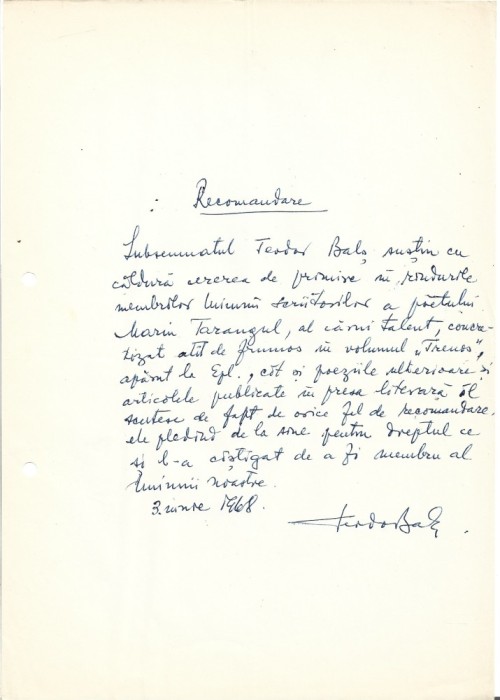 Recomandare
Subsemnatul Teodor Balș, susțin cu
căldură cererea de primire în rîndurile
membrilor Uniunii Scriitorilor a poetului
Marin Tarangul, al cărui talent, concre-
tizat atît de frumos în volumul „Trenos",
apărut la Epl., cît și poeziile ulterioare și
articolele publicate în presa literară îl
scutesc de fapt de orice fel de recomandare.
ele pledînd de la sine pentru dreptul ce
și l-a cîștigat de a fi membru al
Uniunii noastre.
3.iunie 1968.
Teodor Balș